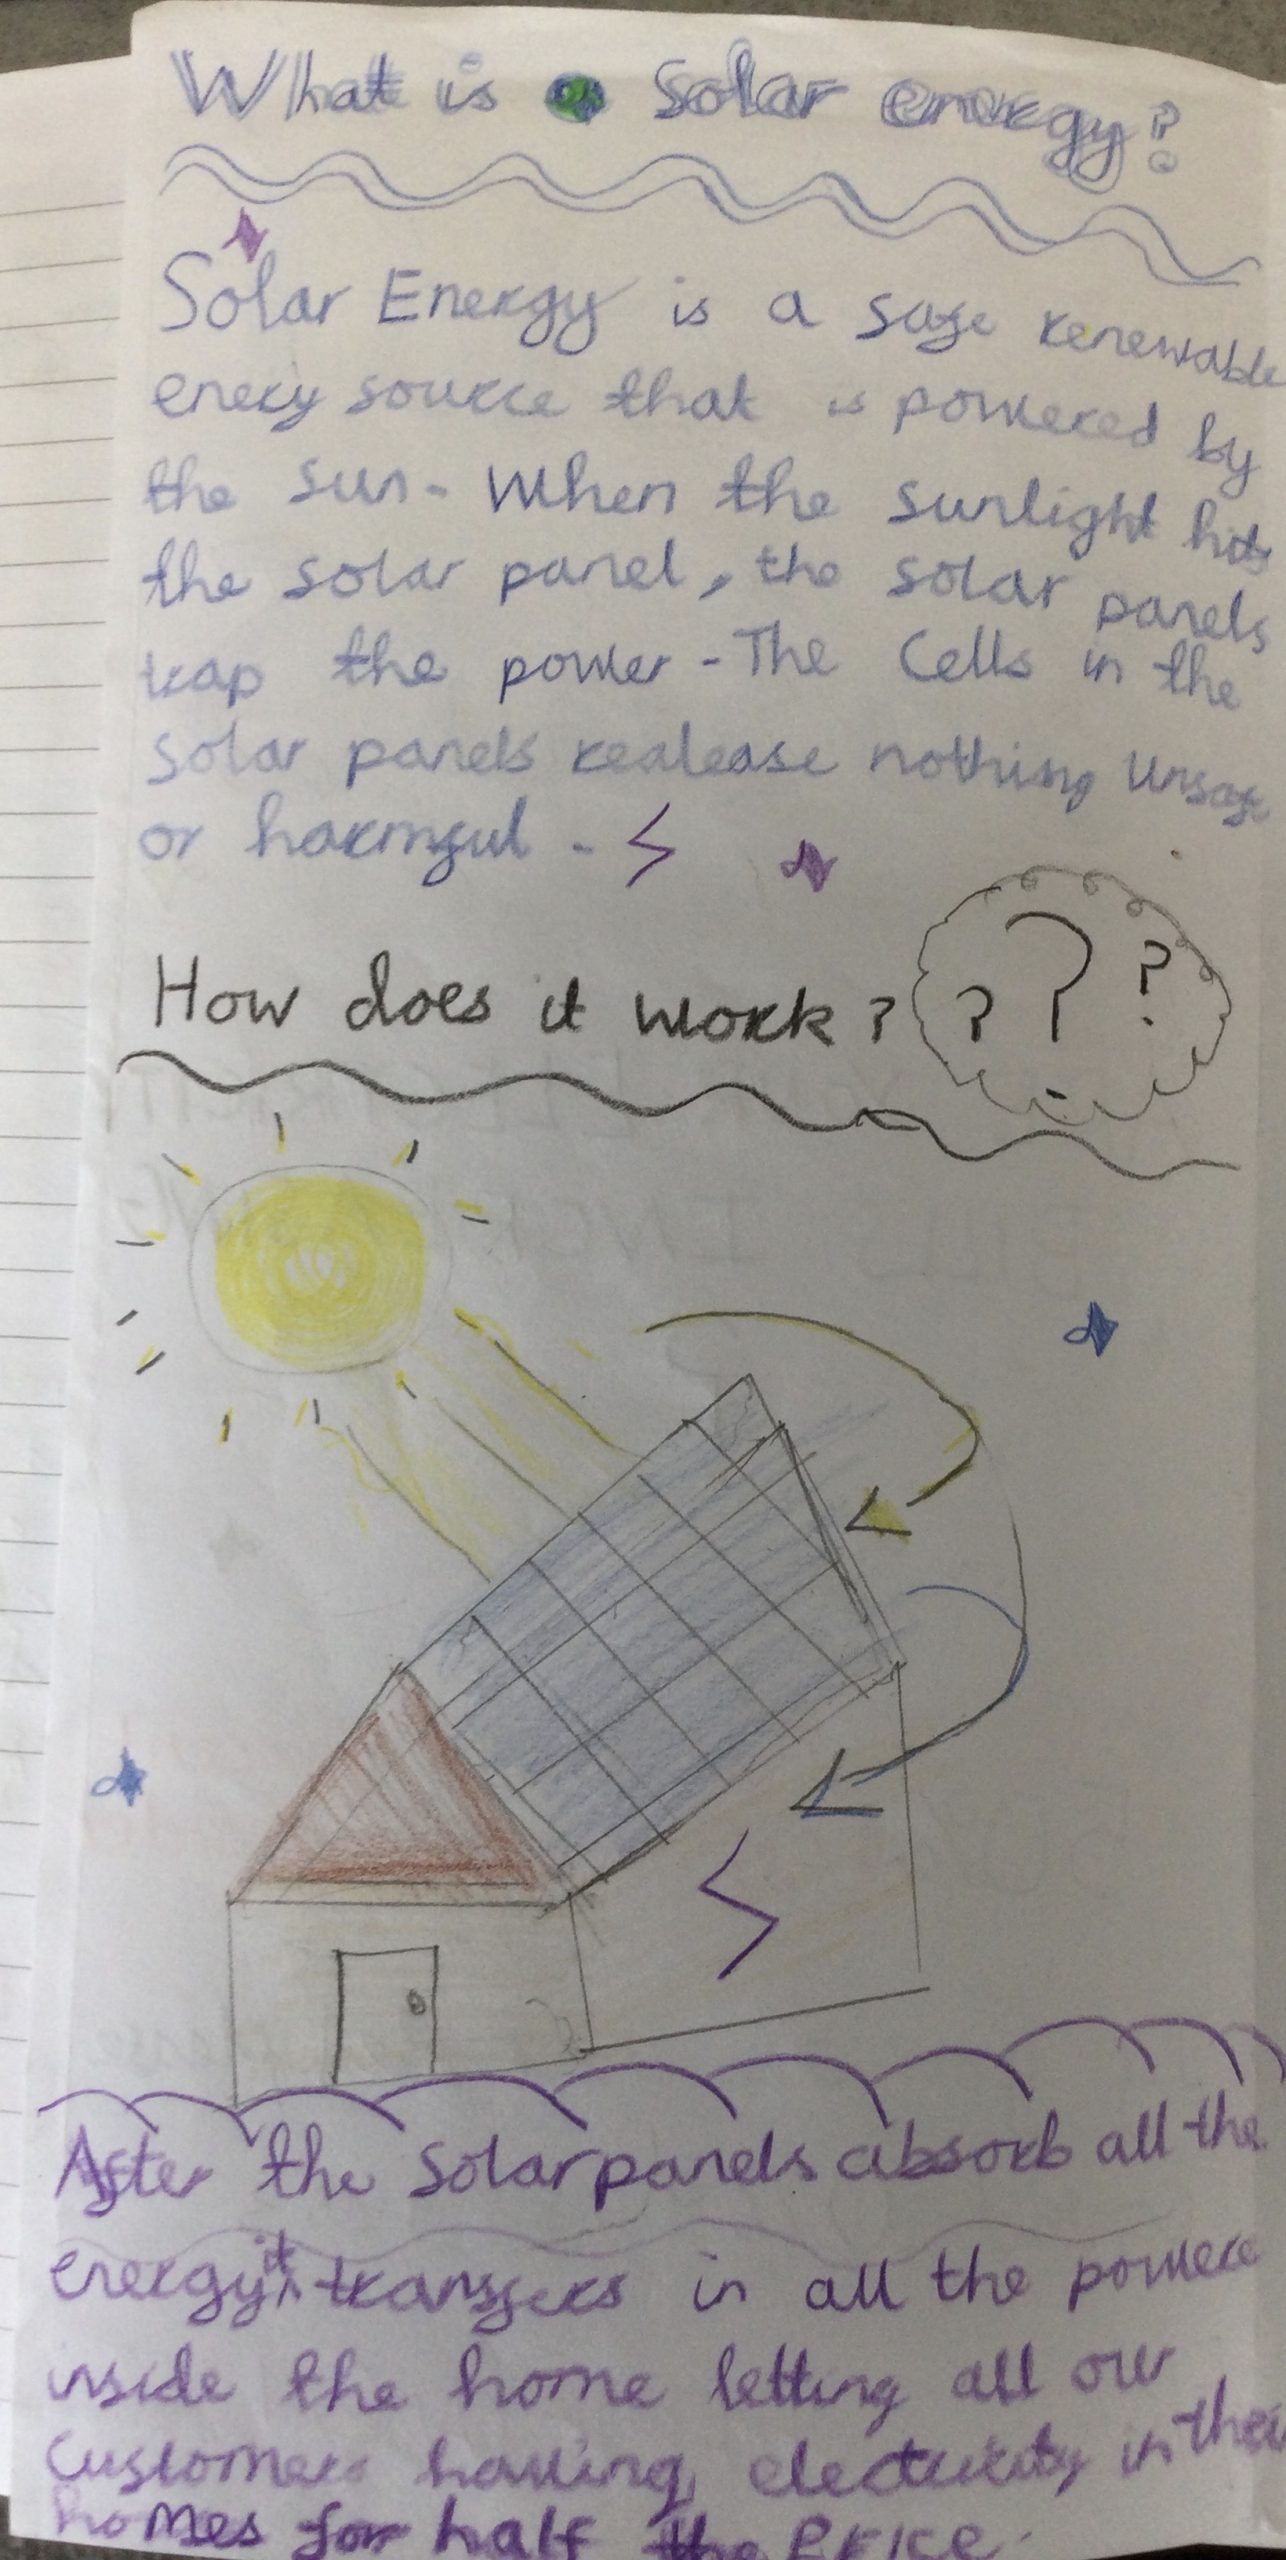 What is Solar energy?
Solar Energy is a safe renewable
enery source that is powered by
the sun. When the sunlight hits
the solar panel, the solar panels
trap the power. The Cells in the
solar panels realease nothing unsafe
or harmful.
How does it work?
? ? ?
After the Solar panels absorb all the
energy it transfers in all the powere
inside the home letting all our
Customers having electricity in their
homes for half the Price.